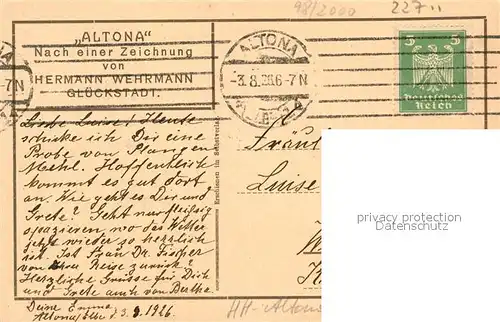 98/2000
227
„ALTONA"
Nach einer Zeichnung
von
HERMANN WEHRMANN
GLÜCKSTADT.
ALTONA
-3.8.26.6-7N
7N
5 5
Deutsches
Reich
Erschienen im Selbstverlag
Liebe Luise! Heute
schicke ich Dir eine
Probe von Plangen
Mehl. Hoffentlich
kommt es gut dort
an. Wie geht es Dir und
Grete? Geht nur fleißig
spazieren wo das Wetter
jetzt wieder so herrlich
ist. Ist Frau Dr. Fischer
von Reise zurück?
Herzliche Grüsse für Dich
und Grete auch von Bertha
Deine Emma
Altona/Elbe d 3. 1926.
Fräul
Luise
HH-Altona
privacy protection
VDMedien24.de